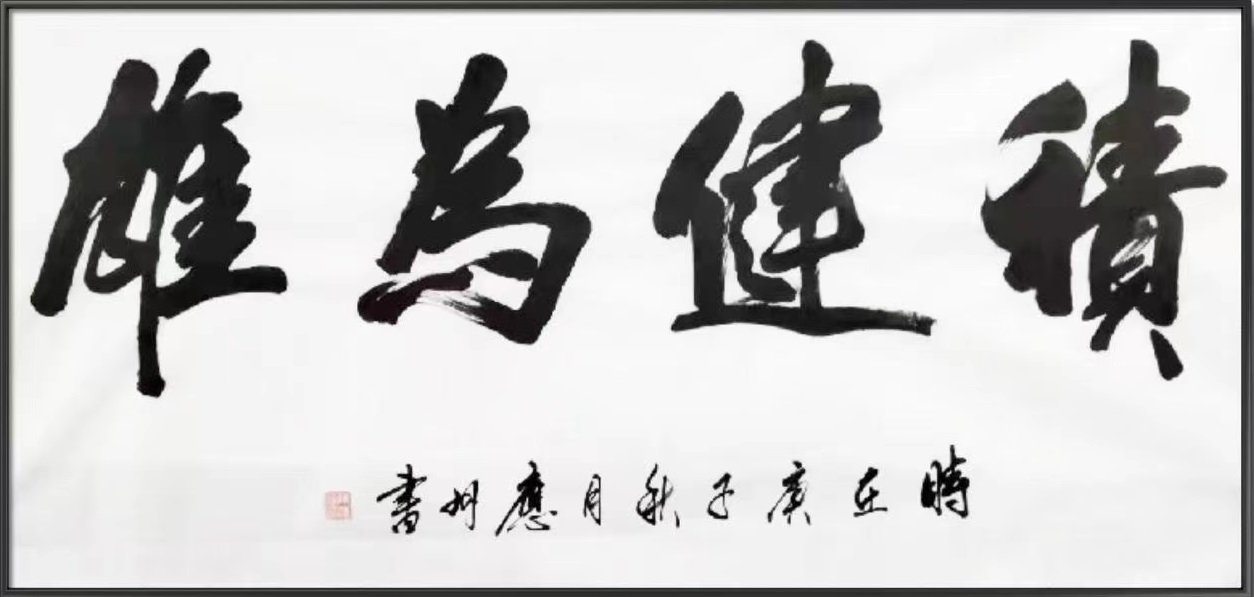 積健為雄
時在庚子秋月應州書